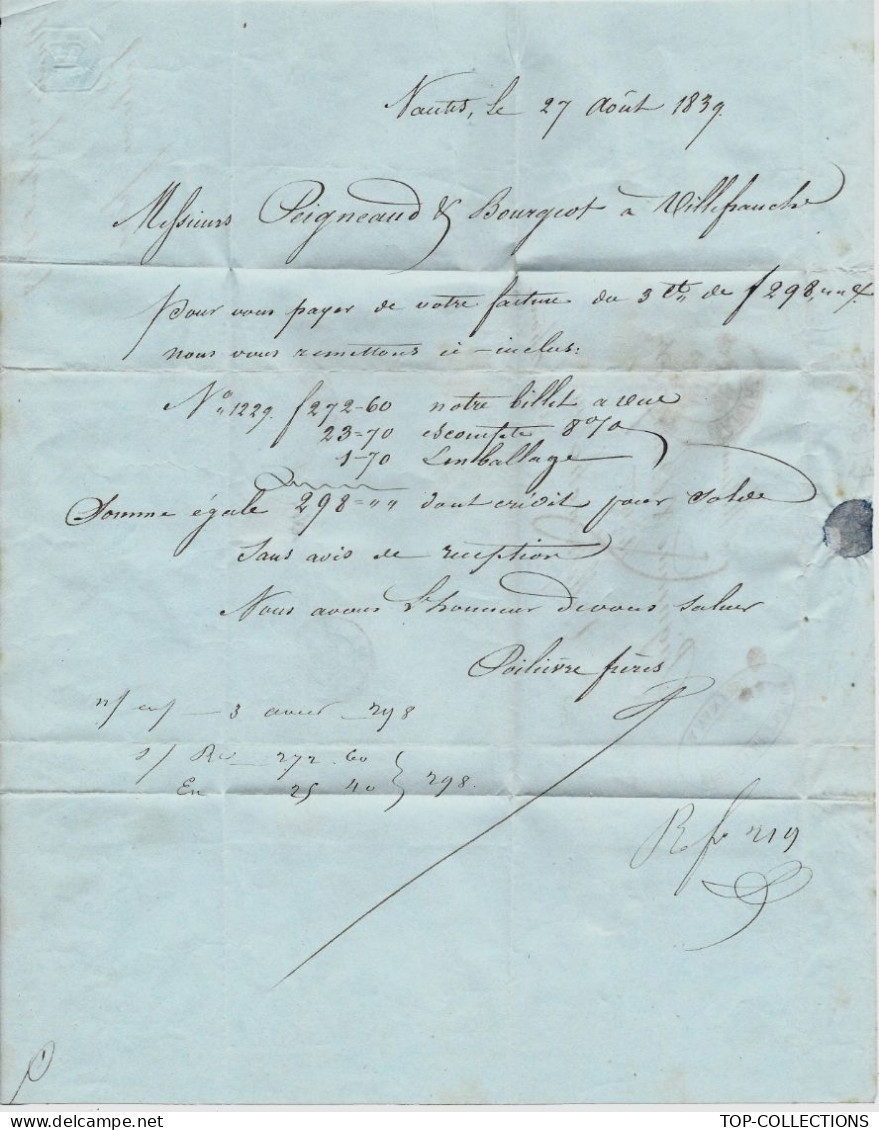 Nantes, le 27 Août 1839.
Messieurs Peigneaud & Bourgeot à Villefranche
Pour vous payer de votre facture du 3 ct de f 298,,
nous vous remettons ci-inclus:
No 1229. f 272=60 notre billet a vue
23=70 escompte 8%
1=70 Emballage
Somme égale 298=,, dont crédit pour solde
Sans avis de reception
Nous avons l'honneur de vous saluer
Poilièvre frères
3 298
272.60
25 40 } 298.
R 219
TOP-COLLECTIONS